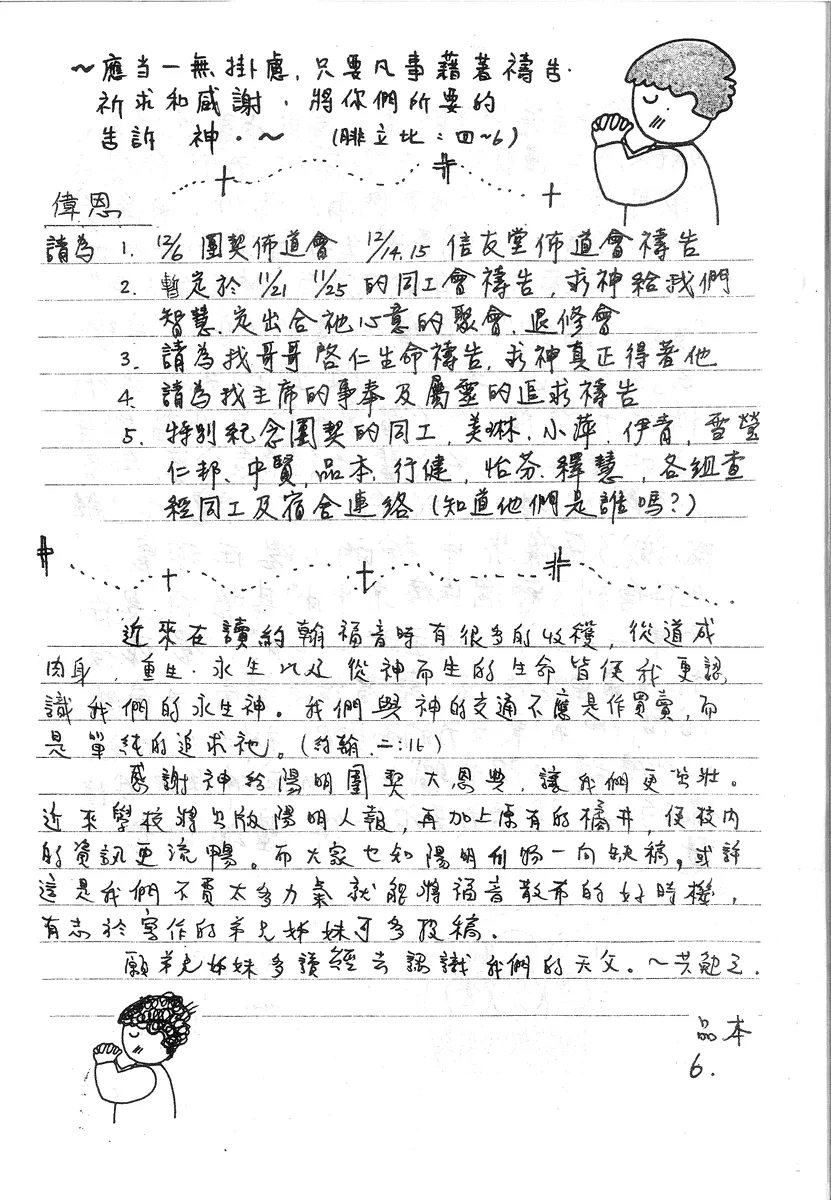 ~應当一無掛慮,只要凡事藉著禱告.
祈求和感謝.將你們所要的
告訴 神.~ (腓立比:四~6)
偉恩
請為 1. 12/6 團契佈道會 12/14.15 信友堂佈道會禱告
2. 暫定於 11/21 11/25 的同工會禱告,求神給我們
智慧.定出合祂心意的聚會.退修會
3. 請為我哥哥啓仁生命禱告.求神真正得著他
4. 請為我主席的事奉及屬靈的追求禱告
5. 特別紀念團契的同工.美琳.小萍.伊青,雪瑩
仁邦.中賢.品本.行健,怡芬.釋慧,各組查
經同工及宿舍連絡(知道他們是誰嗎?)
近來在讀約翰福音時有很多的收穫,從道成
肉身,重生.永生以及從神而生的生命皆使我更認
識我們的永生神。我們與神的交通不應是作買賣,而
是單純的追求祂。(約翰.二:16)
感謝神給陽明團契大恩典,讓我們更茁壯。
近來學校將出版陽明人報,再加上原有的橘井,使校內
的資訊更流暢。而大家也知陽明刊物一向缺稿。或許
這是我們不費太多力氣就能將福音散布的好時機,
有志於寫作的弟兄姊妹可多投稿.
願弟兄姊妹多讀經去認識我們的天父。~共勉之.
品本
6.